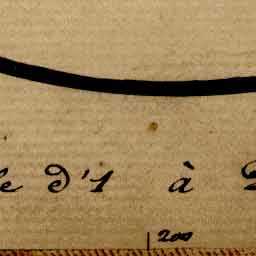 d'1 à
200